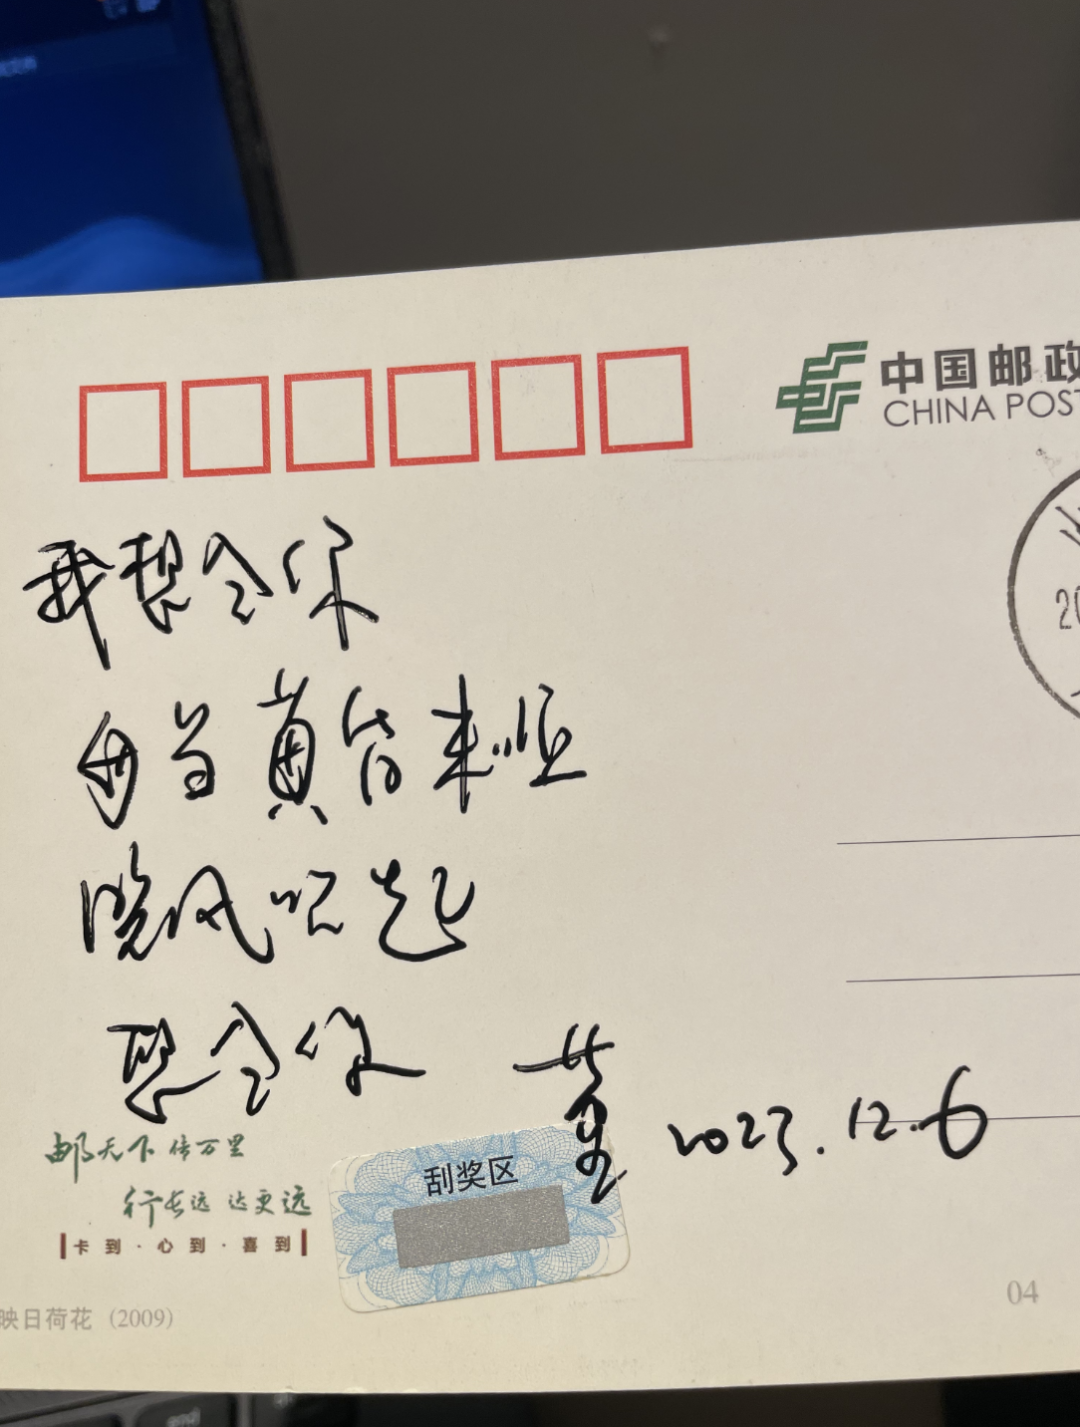 中国邮政
CHINA POST
20
我想念你
每当黄昏来临
晚风吹起
想念你
2023.12.6
邮天下 传万里
行长远 达更远
卡到·心到·喜到
刮奖区
映日荷花 (2009)
04